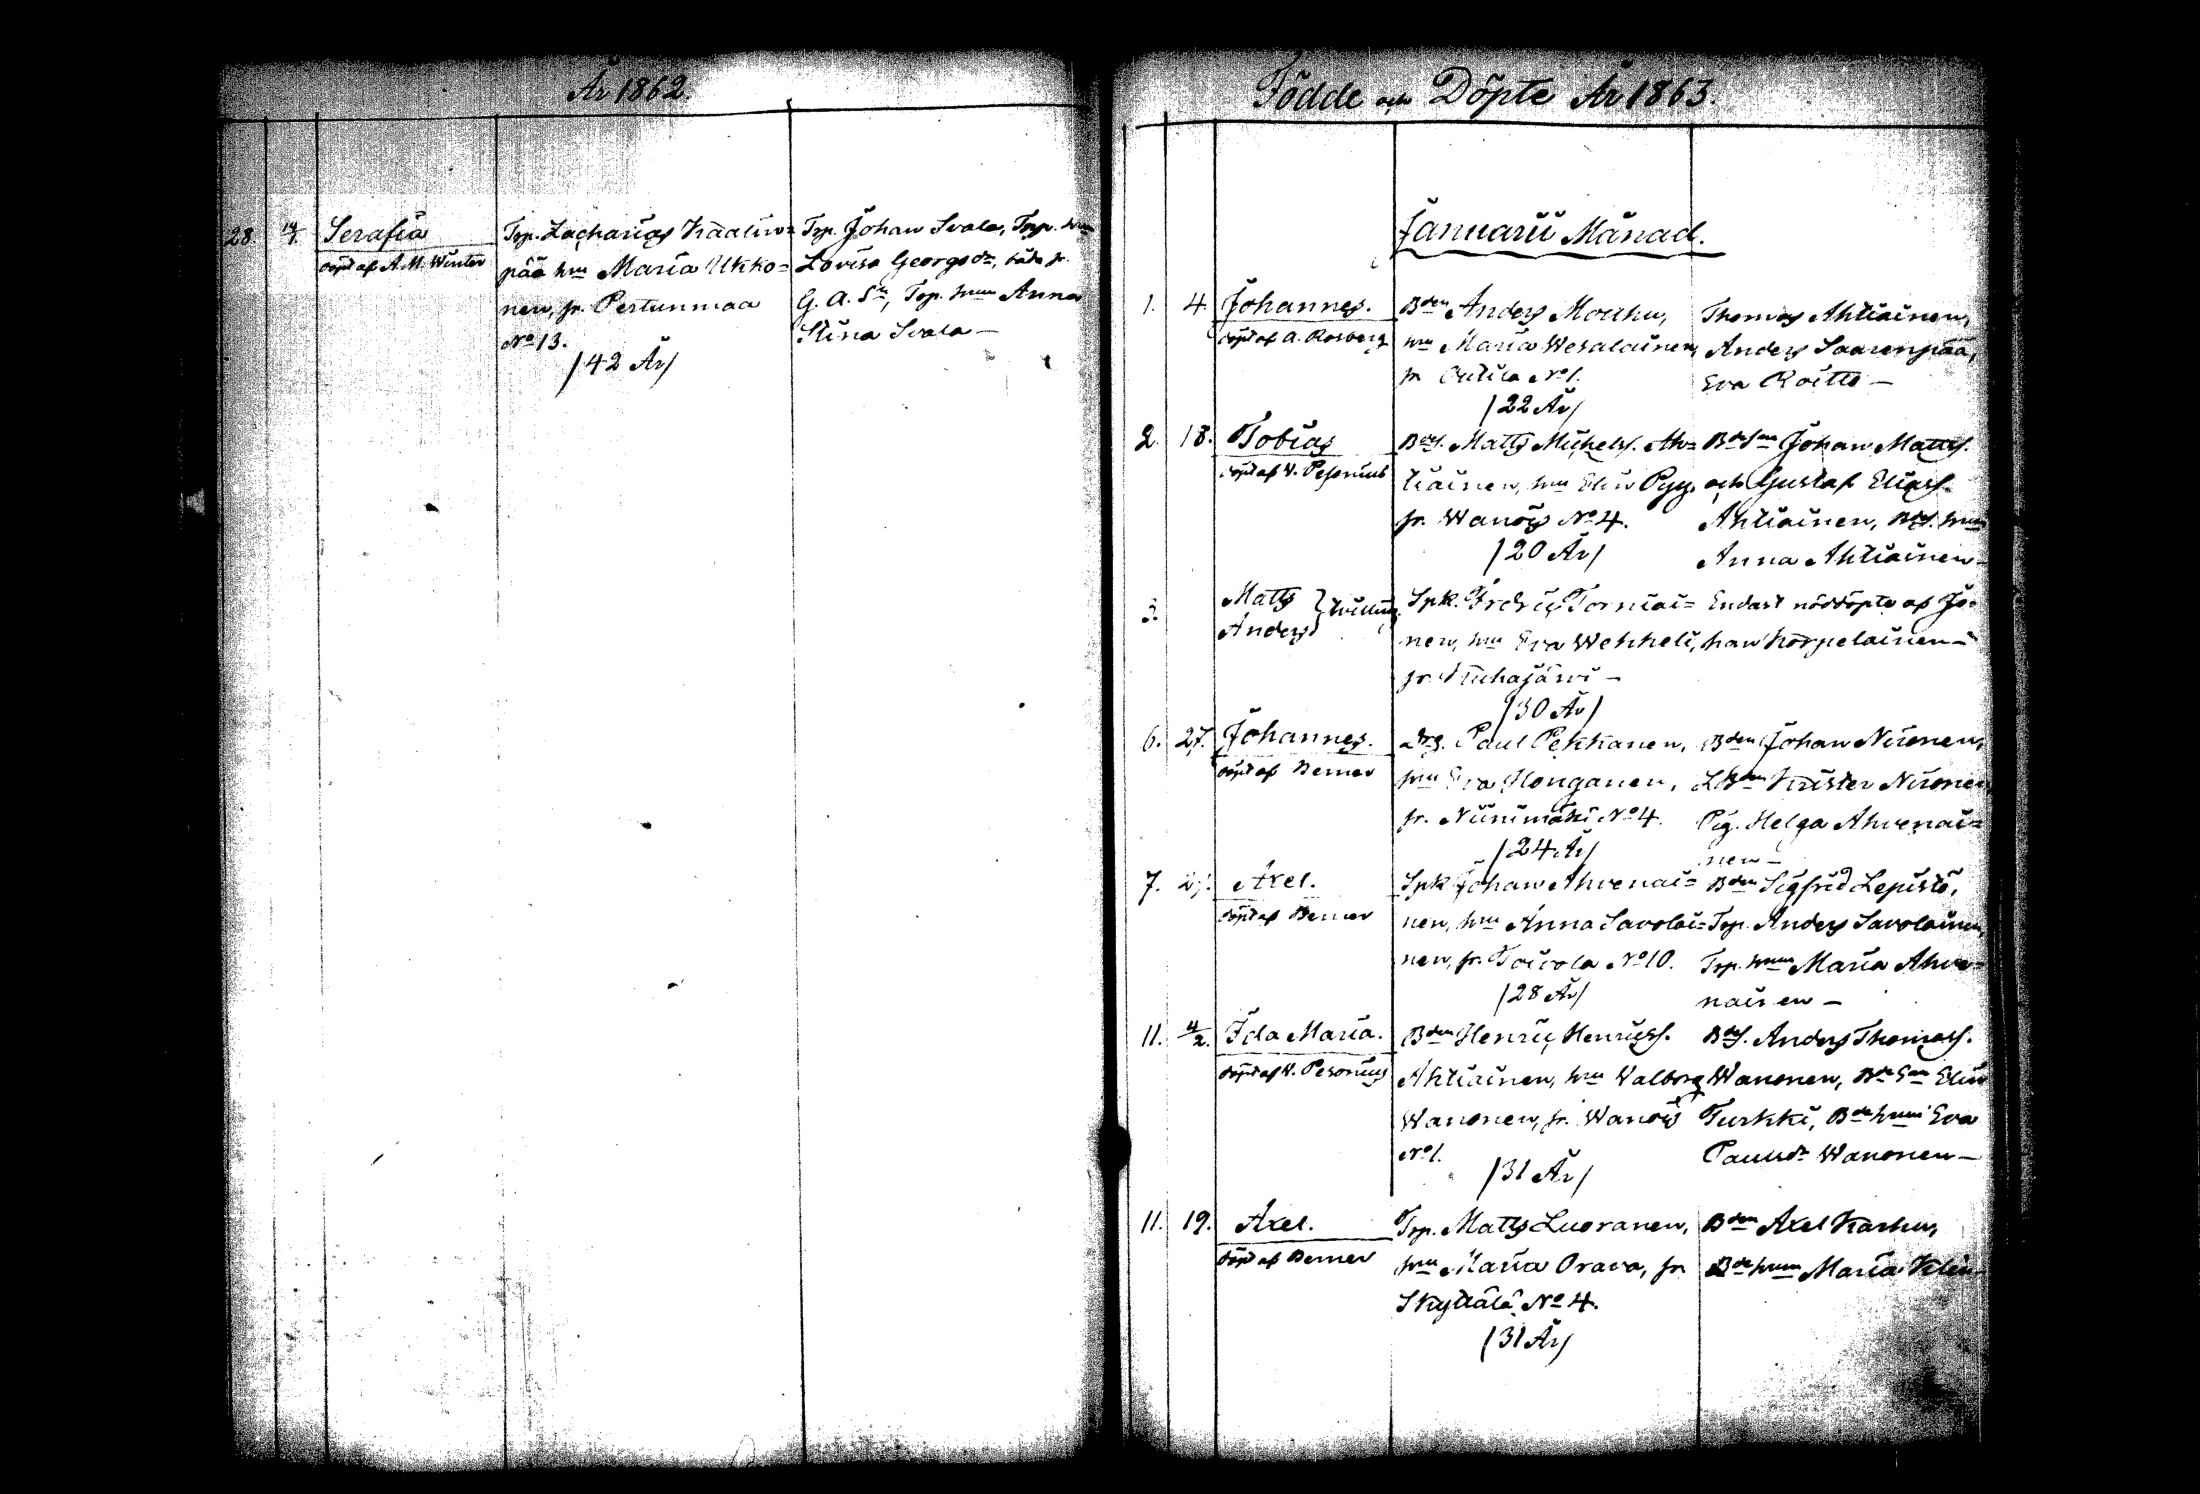 År 1862.
28. 14/1. Serafia
döpt af A. M. Winter
Trp. Zacharias Kaaliin=
pää hru Maria Ukko=
nen, fr. Pertunmaa
No 13.
/42 År/
Trp. Johan Svala, Trp. hru
Lovisa Georgsdr, båda fr.
G. A. Sn, Trp. hrun Anna
Stina Svala —
Födde och Döpte År 1863.
Januarii Månad.
1. 4. Johannes.
döpt af A. Rosberg
Bden Anders Mouhu,
hru Maria Wesalainen,
fr No 1.
/22 År/
Thomas Ahtiainen,
Anders Saarenpää,
Eva Roitto —
2. 18. Tobias
döpt af V. Pesonius
Bdes. Matts Michelss. Ah=
tiainen, hru Elin Pyy,
fr. Wanois No 4.
/20 År/
Bdesne Johan Mattss.
och Gustaf Eliass.
Ahtiainen, Bdes. hrun
Anna Ahtiainen —
3. Matts
Anders } tvilling.
Spk. Fredric Torniai=
nen, hru Eva Wehkeli,
fr. Kuhajärvi —
/30 År/
Endast nöddöpte af Jo=
han Korpelainen —
6. 27. Johannes.
döpt af Berner
Drg. Paul Pekkanen,
hru Eva Honganen,
fr. Niinimäki No 4.
/24 År/
Bden Johan Nironen,
LBden Krister Nironen
Pig. Helga Ahvenai=
nen —
7. 27. Axel.
döpt af Berner
Spk Johan Ahvenai=
nen, hru Anna Savolai=
nen, fr. Toivola No 10.
/28 År/
Bden Sigfrid Lepistö,
Trp. Anders Savolainen,
Trp. hrun Maria Ahve=
nainen —
11. 4/2. Ida Maria.
döpt af V. Pesonius
Bden Henric Henricss.
Ahtiainen, hru Walborg
Wanonen, fr. Wanois
No 1.
/31 År/
Bdes. Anders Thomass.
Wanonen, Elin
Turkki, Bdehrun Eva
Paulsdr Wanonen —
11. 19. Axel.
döpt af Berner
Trp. Matts Luoranen,
hru Maria Orava, fr
Skyttälä No 4.
/31 År/
Bden Axel Karhu,
Bdehrun Maria